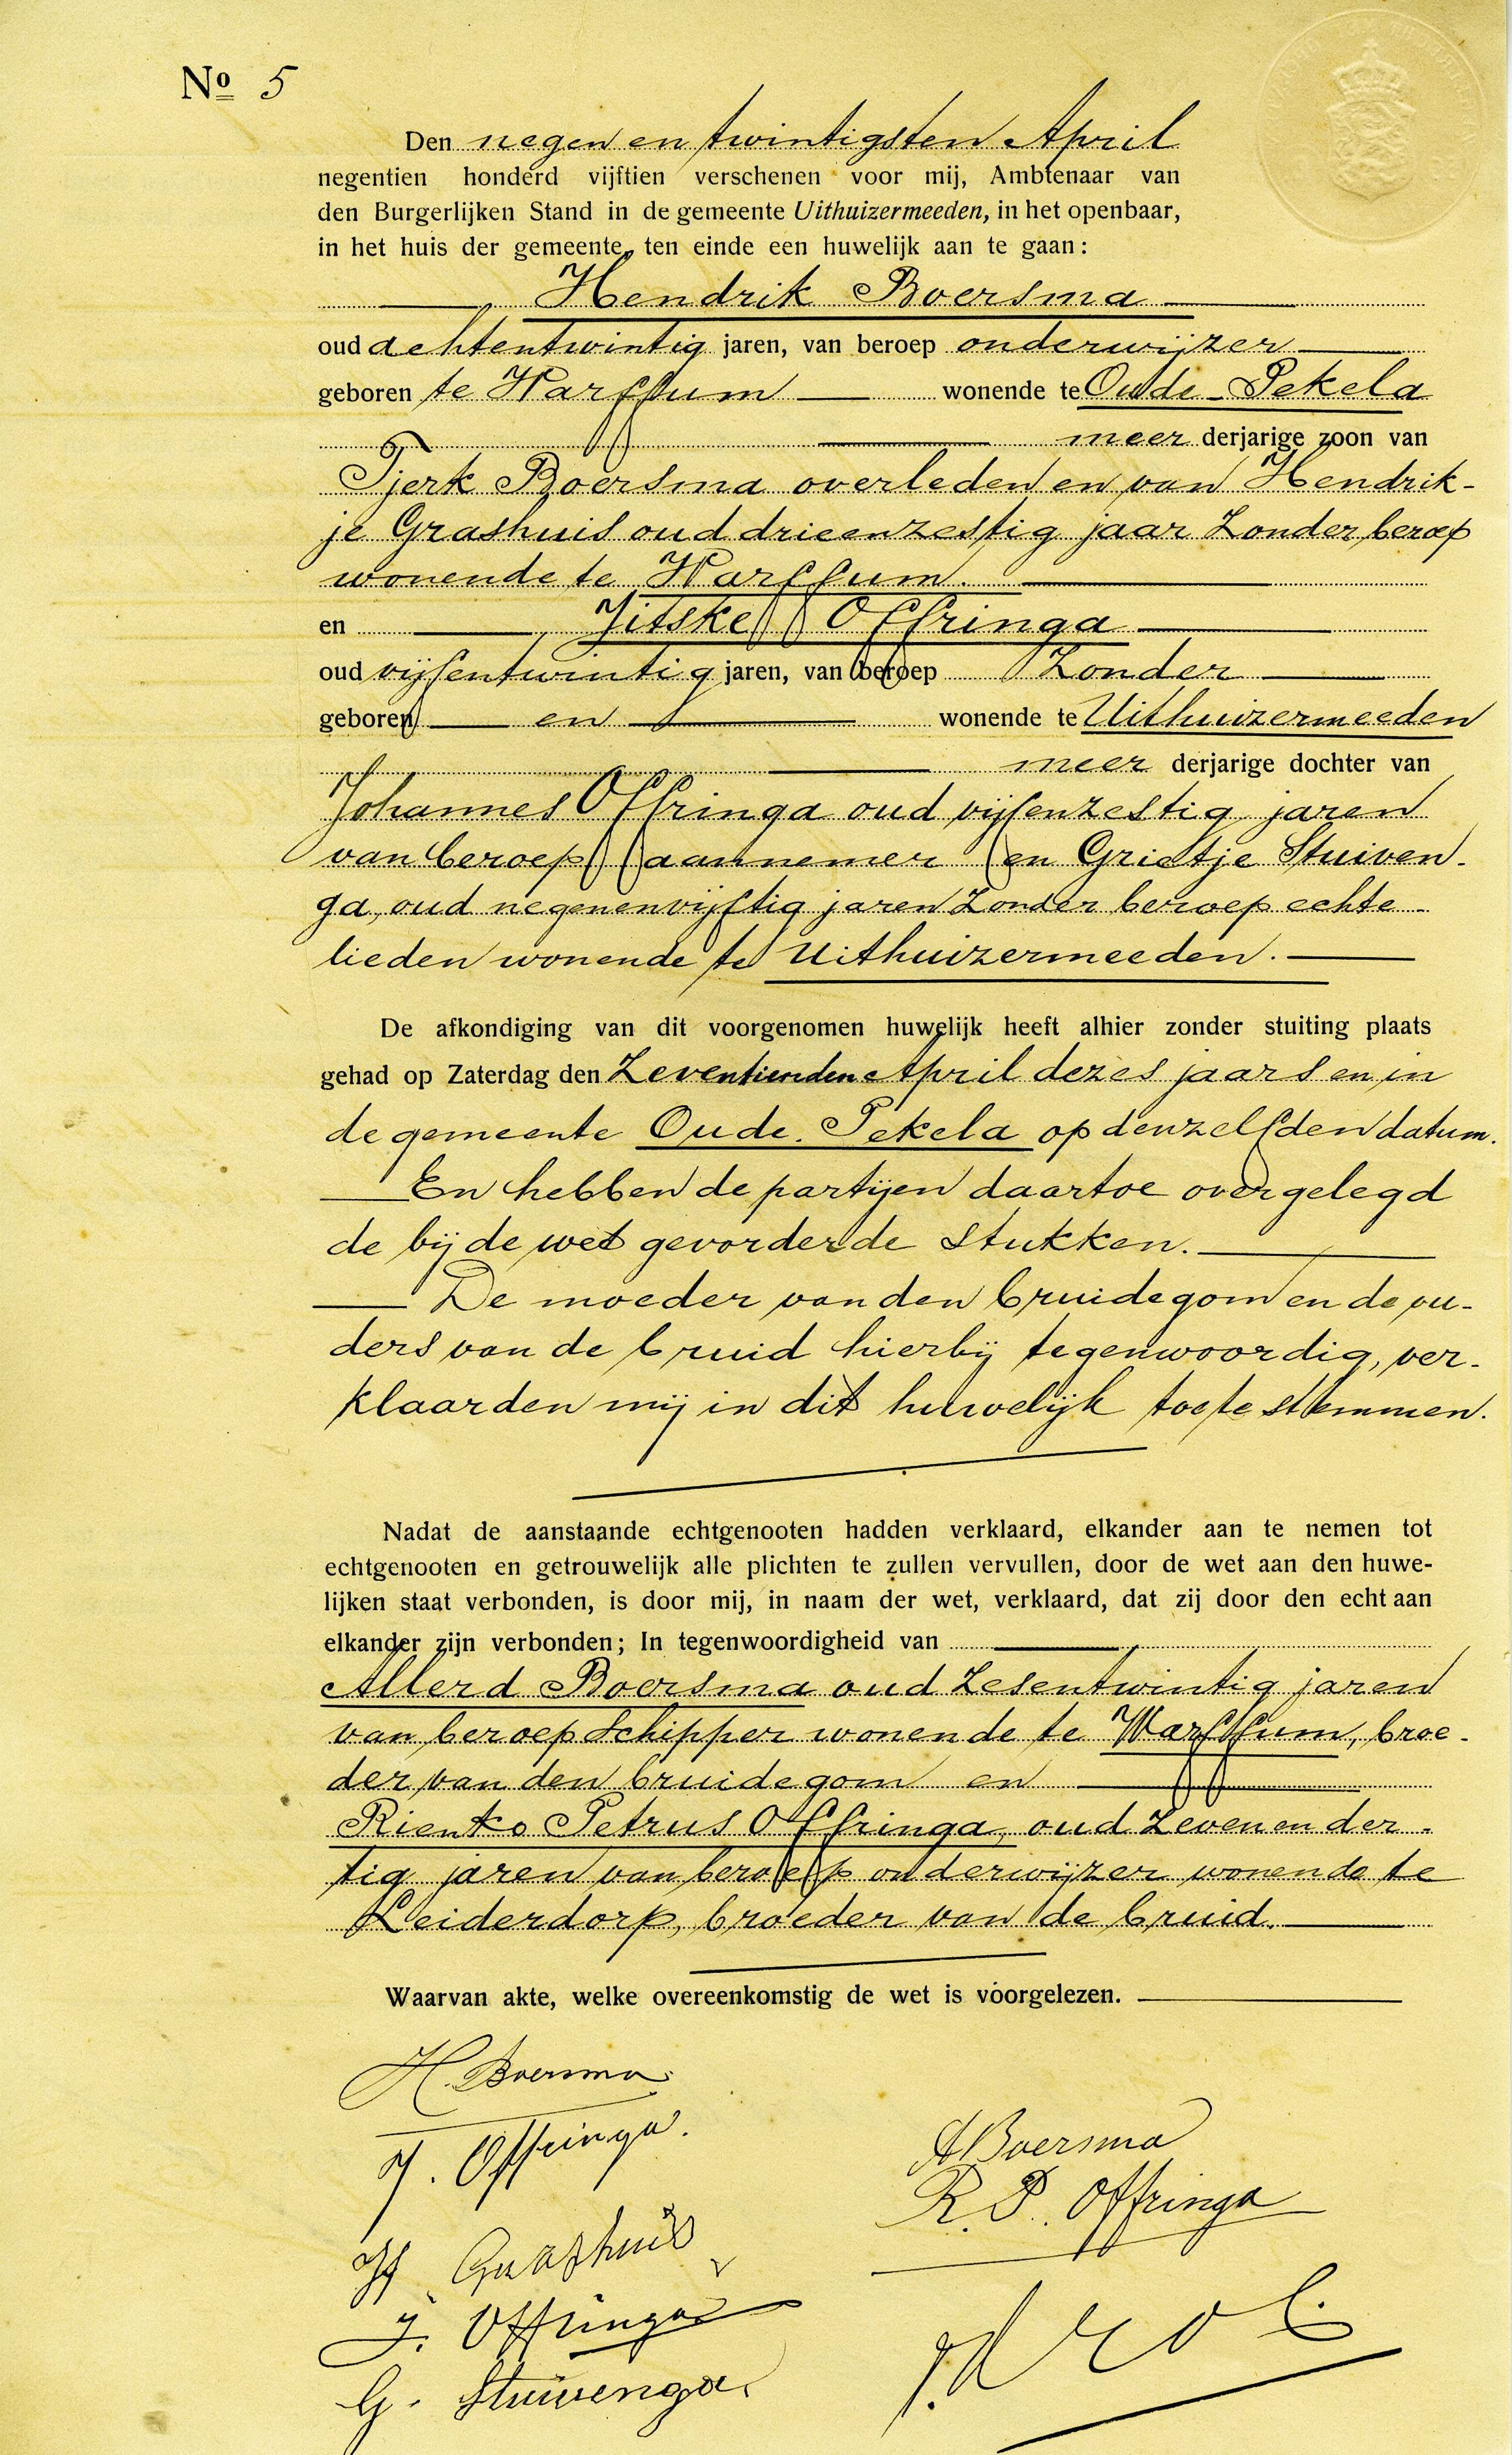 No 5
Den negen en twintigsten April
negentien honderd vijftien verschenen voor mij, Ambtenaar van
den Burgerlijken Stand in de gemeente Uithuizermeeden, in het openbaar,
in het huis der gemeente, ten einde een huwelijk aan te gaan:
Hendrik Boersma
oud achtentwintig jaren, van beroep onderwijzer
geboren te Warffum wonende te Oude-Pekela
meer derjarige zoon van
Tjerk Boersma overleden en van Hendrik-
je Grashuis oud drieenzestig jaar zonder beroep
wonende te Warffum.
en Jitske Offringa
oud vijfentwintig jaren, van beroep zonder
geboren en wonende te Uithuizermeeden
meer derjarige dochter van
Johannes Offringa oud vijfenzestig jaren
van beroep aannemer en Grietje Stuiven-
ga, oud negenenvijftig jaren zonder beroep echte-
lieden wonende te Uithuizermeeden.
De afkondiging van dit voorgenomen huwelijk heeft alhier zonder stuiting plaats
gehad op Zaterdag den zeventienden April dezes jaars en in
de gemeente Oude Pekela op denzelfden datum.
En hebben de partijen daartoe overgelegd
de bij de wet gevorderde stukken.
De moeder van den bruidegom en de ou-
ders van de bruid hierbij tegenwoordig, ver-
klaarden mij in dit huwelijk toe te stemmen.
Nadat de aanstaande echtgenooten hadden verklaard, elkander aan te nemen tot
echtgenooten en getrouwelijk alle plichten te zullen vervullen, door de wet aan den huwe-
lijken staat verbonden, is door mij, in naam der wet, verklaard, dat zij door den echt aan
elkander zijn verbonden; In tegenwoordigheid van
Allerd Boersma oud zesentwintig jaren
van beroep schipper wonende te Warffum, broe-
der van den bruidegom en
Rienko Petrus Offringa, oud zeven en der-
tig jaren van beroep onderwijzer wonende te
Leiderdorp, broeder van de bruid.
Waarvan akte, welke overeenkomstig de wet is voorgelezen.
H. Boersma
J. Offringa.
A Boersma
R. P. Offringa
H Grashuis
J. Offringa
G. Stuivenga.